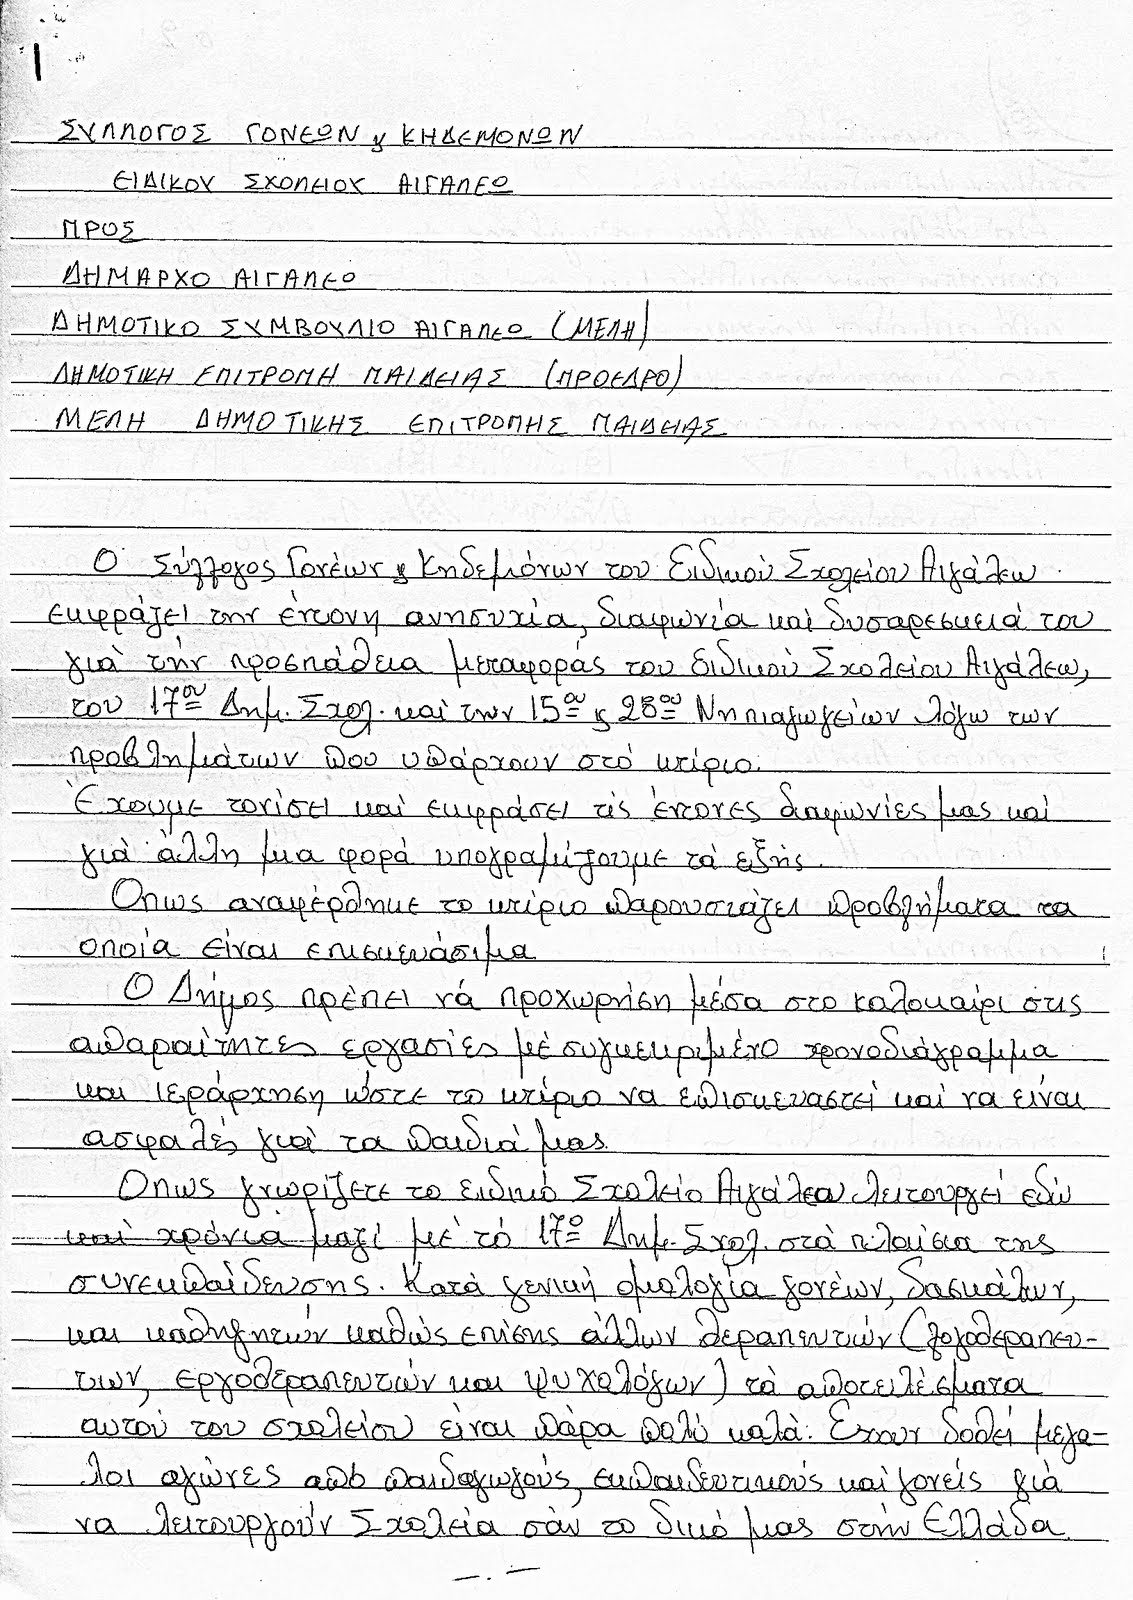 1
ΣΥΛΛΟΓΟΣ ΓΟΝΕΩΝ & ΚΗΔΕΜΟΝΩΝ
ΕΙΔΙΚΟΥ ΣΧΟΛΕΙΟΥ ΑΙΓΑΛΕΩ
ΠΡΟΣ
ΔΗΜΑΡΧΟ ΑΙΓΑΛΕΩ
ΔΗΜΟΤΙΚΟ ΣΥΜΒΟΥΛΙΟ ΑΙΓΑΛΕΩ (ΜΕΛΗ)
ΔΗΜΟΤΙΚΗ ΕΠΙΤΡΟΠΗ ΠΑΙΔΕΙΑΣ (ΠΡΟΕΔΡΟ)
ΜΕΛΗ ΔΗΜΟΤΙΚΗΣ ΕΠΙΤΡΟΠΗΣ ΠΑΙΔΕΙΑΣ
Ο Σύλλογος Γονέων & Κηδεμόνων του Ειδικού Σχολείου Αιγάλεω
εκφράζει την έντονη ανησυχία, διαφωνία καί δυσαρέσκειά του
γιά τήν προσπάθεια μεταφοράς του ειδικού Σχολείου Αιγάλεω,
του 17ου Δημ. Σχολ. καί των 15ου & 28ου Νηπιαγωγείων λόγω των
προβλημάτων που υπάρχουν στό κτίριο.
Έχουμε τονίσει καί εκφράσει τίς έντονες διαφωνίες μας καί
γιά άλλη μια φορά υπογραμμίζουμε τά εξής.
Οπως αναφέρθηκε το κτίριο παρουσιάζει προβλήματα τα
οποία είναι επισκευάσιμα
Ο Δήμος πρέπει νά προχωρήση μέσα στο καλοκαίρι στις
απαραίτητες εργασίες μέ συγκεκριμένο χρονοδιάγραμμα
και ιεράρχηση ώστε το κτίριο να επισκευαστεί καί να είναι
ασφαλές γιά τα παιδιά μας.
Οπως γνωρίζετε το ειδικό Σχολείο Αιγάλεω λειτουργεί εδώ
καί χρόνια μαζί μέ τό 17ο Δημ. Σχολ. στά πλαίσια της
συνεκπαίδευσης. Κατά γενική ομολογία γονέων, δασκάλων,
και καθηγητών καθώς επίσης άλλων θεραπευτών (λογοθεραπευ-
των, εργοθεραπευτών και ψυχολόγων) τά αποτελέσματα
αυτού του σχολείου είναι πάρα πολύ καλά. Εχουν δοθεί μεγά-
λοι αγώνες από παιδαγωγούς, εκπαιδευτικούς καί γονείς γιά
να λειτουργούν Σχολεία σάν το δικό μας στήν Ελλάδα.